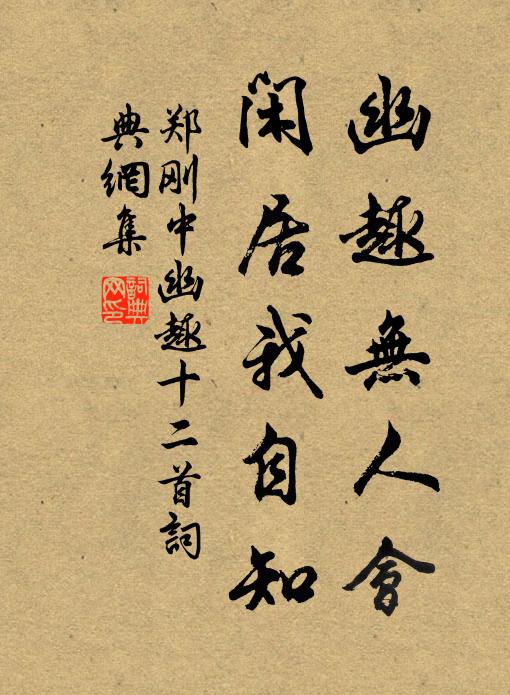 幽趣無人會
闲居我自知
郑刚中幽趣十二首詞
典網集
詞典网印